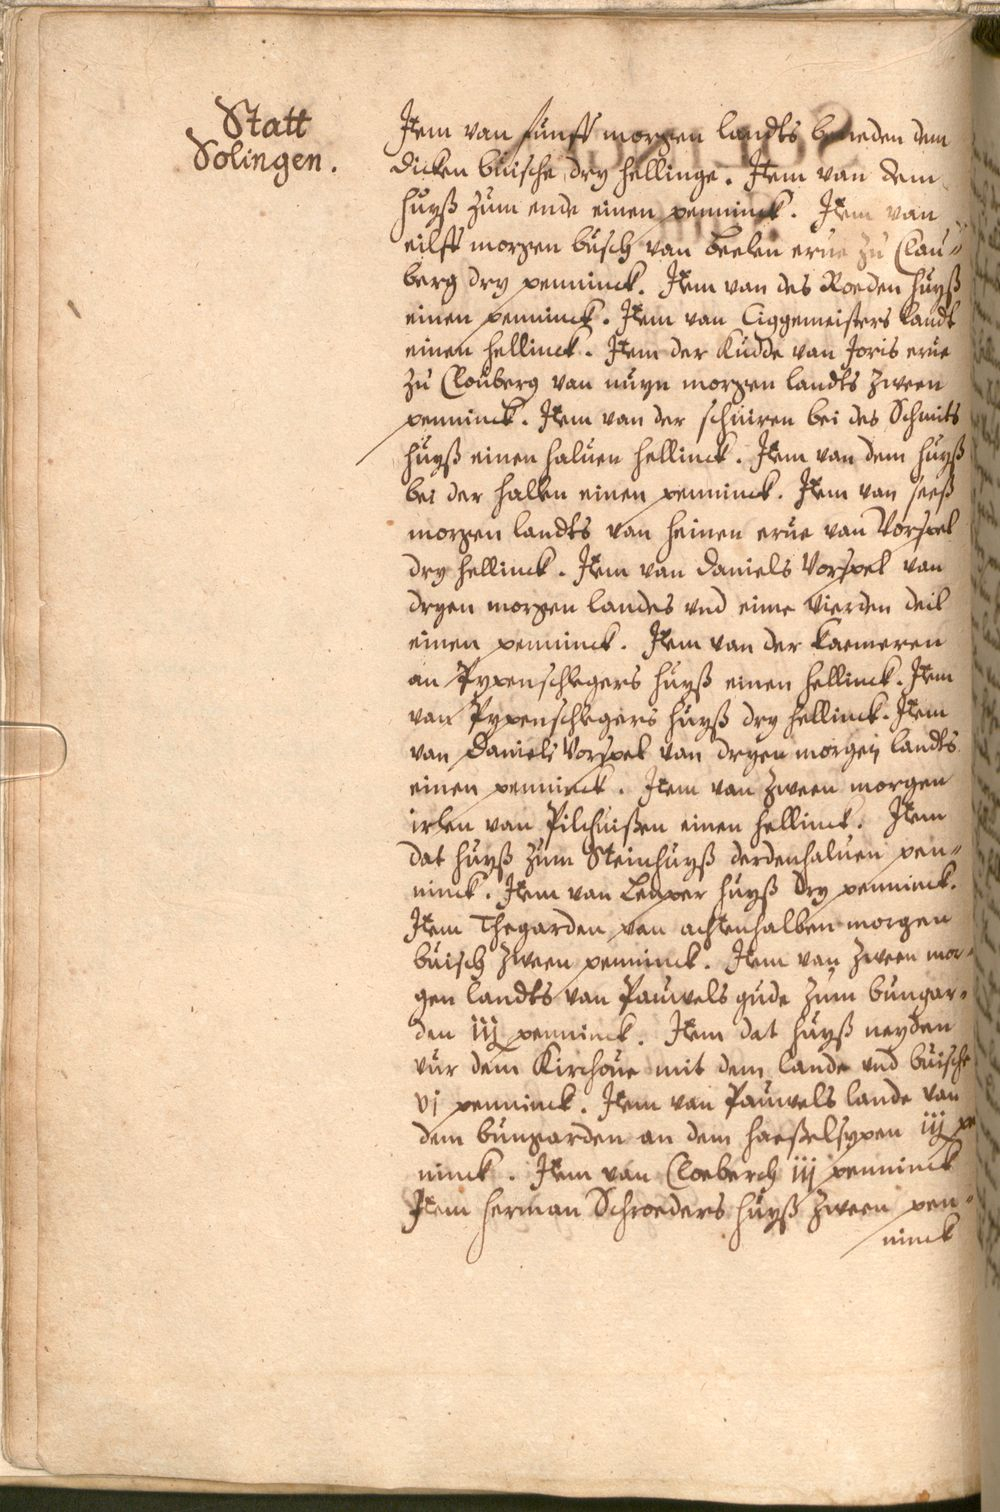 Statt
Solingen.
Item van funff morgen landts beneden dem
dicken buische dry hellinge. Item van dem
huyß zum ende einen penninck. Item van
eilff morgen busch van Beelen erue zu Clau=
berg dry penninck. Item van des Roeden huyß
einen penninck. Item van Ciggemeisters landt
einen hellinck. Item der Kudde van Joris erue
zu Clouberg van nuyn morgen landts zween
penninck. Item van der schuiren bei des Schmits
huyß einen haluen hellinck. Item van dem huyß
bei der hallen einen penninck. Item van seeß
morgen landts van heinen erue van Vorspel
dry hellinck. Item van Daniels Vorspel van
dryen morgen landes vnd eime vierden deil
einen penninck. Item van der Kaemeren
an Pypenschlegers huyß einen hellinck. Item
van Pypenschlegers huyß dry hellinck. Item
van Daniels Vorspel van dryen morgen landts
einen penninck. Item van zween morgen
irlen van Pilchußen einen hellinck. Item
dat huyß zum Steinhuyß derdenhaluen pen=
ninck. Item van Leaper huyß dry penninck.
Item Thegarden van achtenhalben morgen
buisch zween penninck. Item van zween mor=
gen landts van Pauwels gude zum bungar=
den iij penninck. Item dat huyß neyden
vur dem Kirchoue mit dem lande vnd buische
vj penninck. Item van Pauwels lande van
dem bungarden an dem haeßelsypen iij pe
ninck. Item van Cloeberch iij penninck
Item herman Schroeders huyß zween pen=
ninck